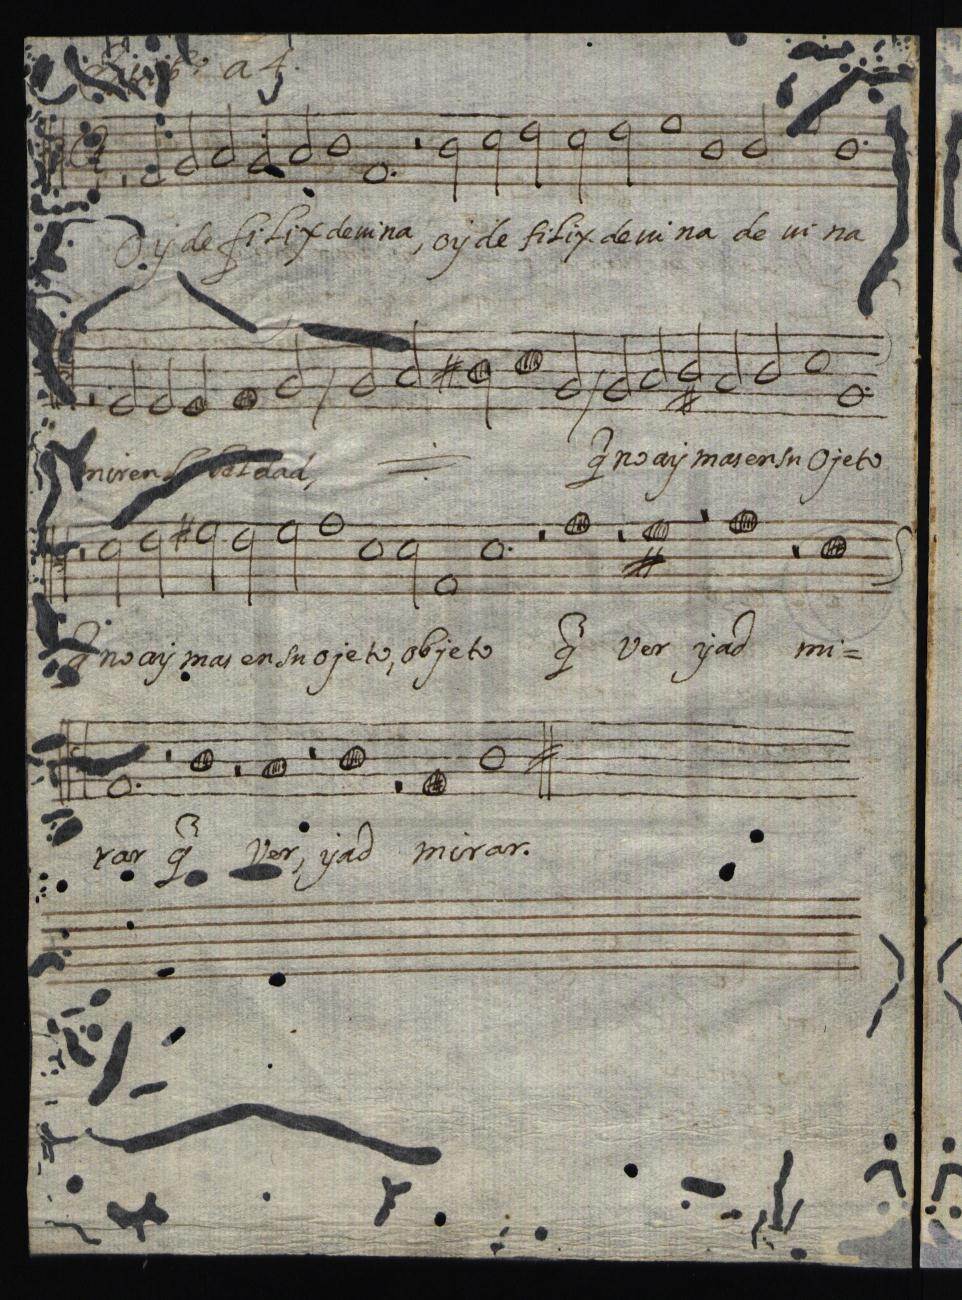 a 4.
Oy de filix devina, oy de filix devina de vi na
miren su beldad, q̃ no ay mas en su Ojeto
q̃ no ay mas en su ojeto, objeto q̃ ver yad mi=
rar q̃ Ver, yad mirar.